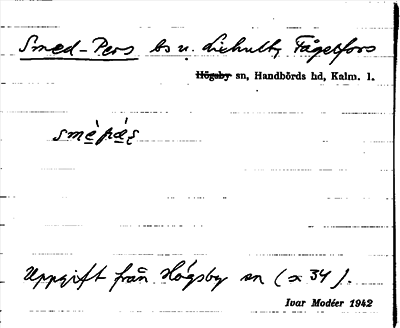 Smed-Pers bs u. Lickulla, Fågelfors
Högsby sn, Handbörds hd, Kalm. l.
smèpæ̀ș
Uppgift från Högsby sn (s 34).
Ivar Modéer 1942